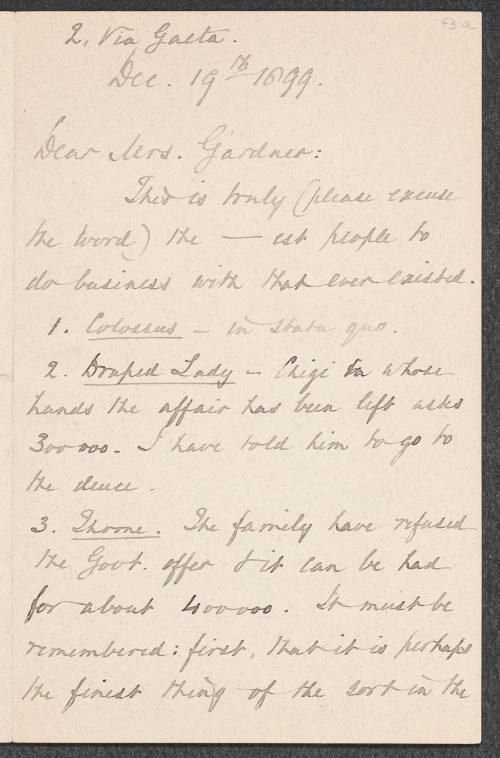 43a
2, Via Gaeta.
Dec. 19th 1899.
Dear Mrs. Gardner:
This is truly (please excuse
the word) the — est people to
do business with that ever existed.
1. Colossus — in statu quo.
2. Draped Lady — Chigi in whose
hands the affair has been left asks
300000. I have told him to go to
the deuce.
3. Throne. The family have refused
the Govt. offer & it can be had
for about 400000. It must be
remembered: first, that it is perhaps
the finest thing of the sort in the